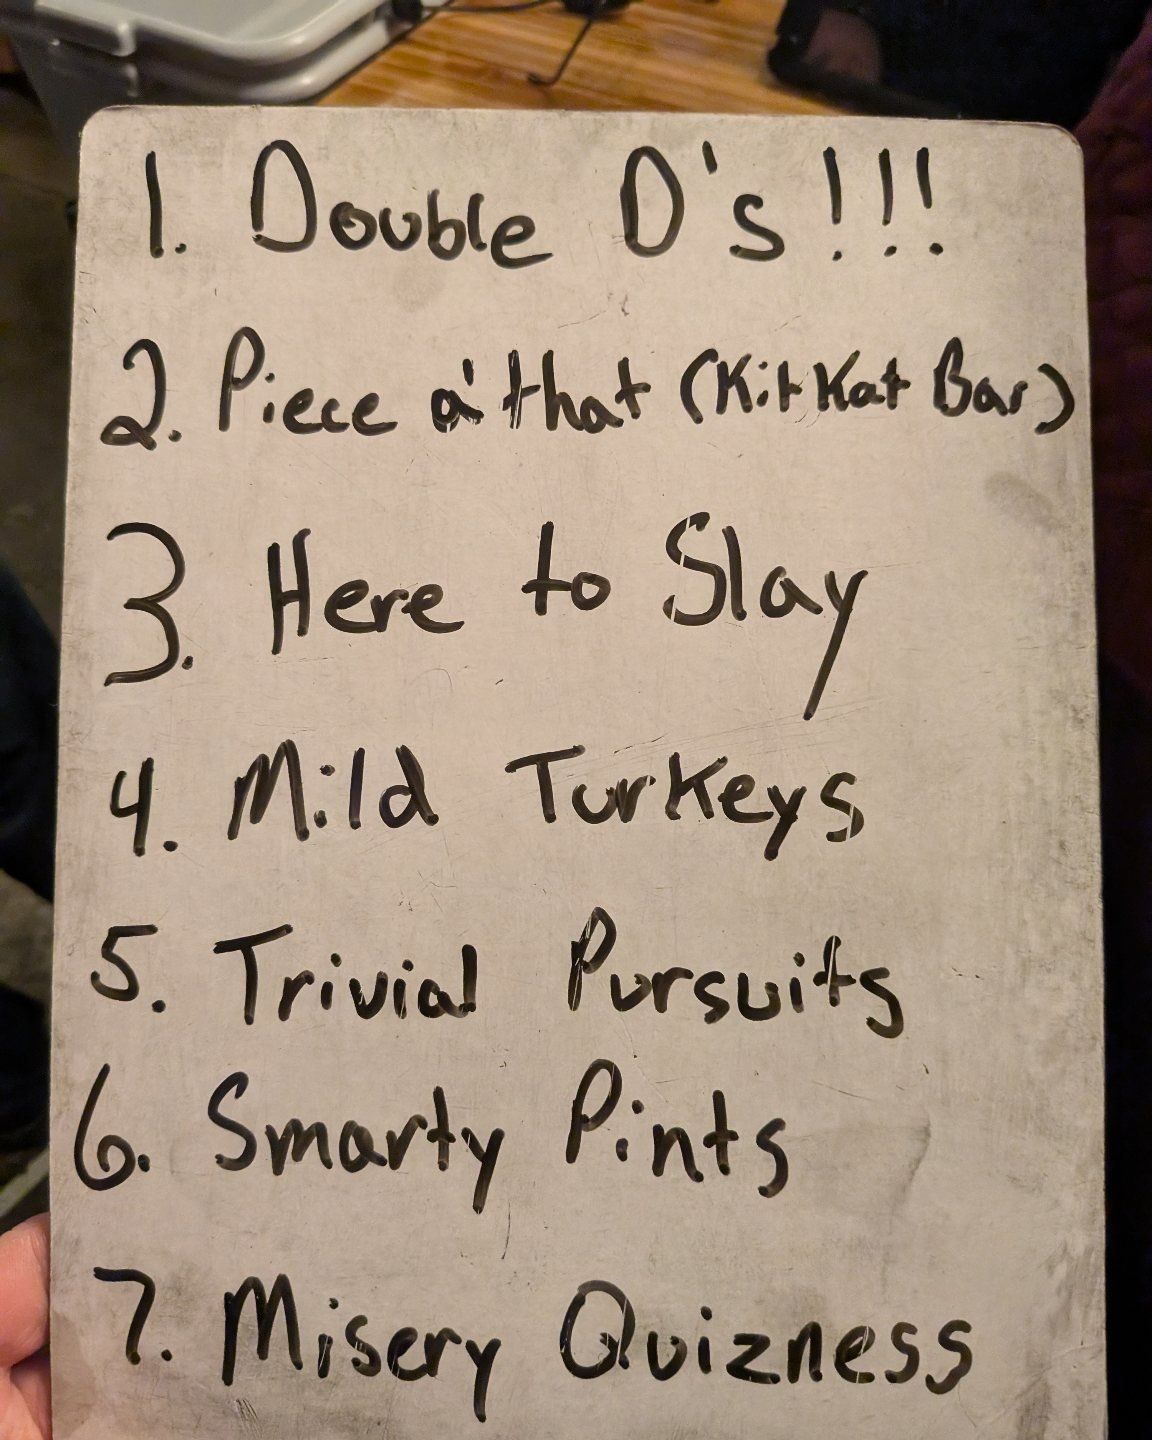 1. Double D's!!!
2. Piece a' that (Kit Kat Bar)
3. Here to Slay
4. Mild Turkeys
5. Trivial Pursuits
6. Smarty Pints
7. Misery Quizness